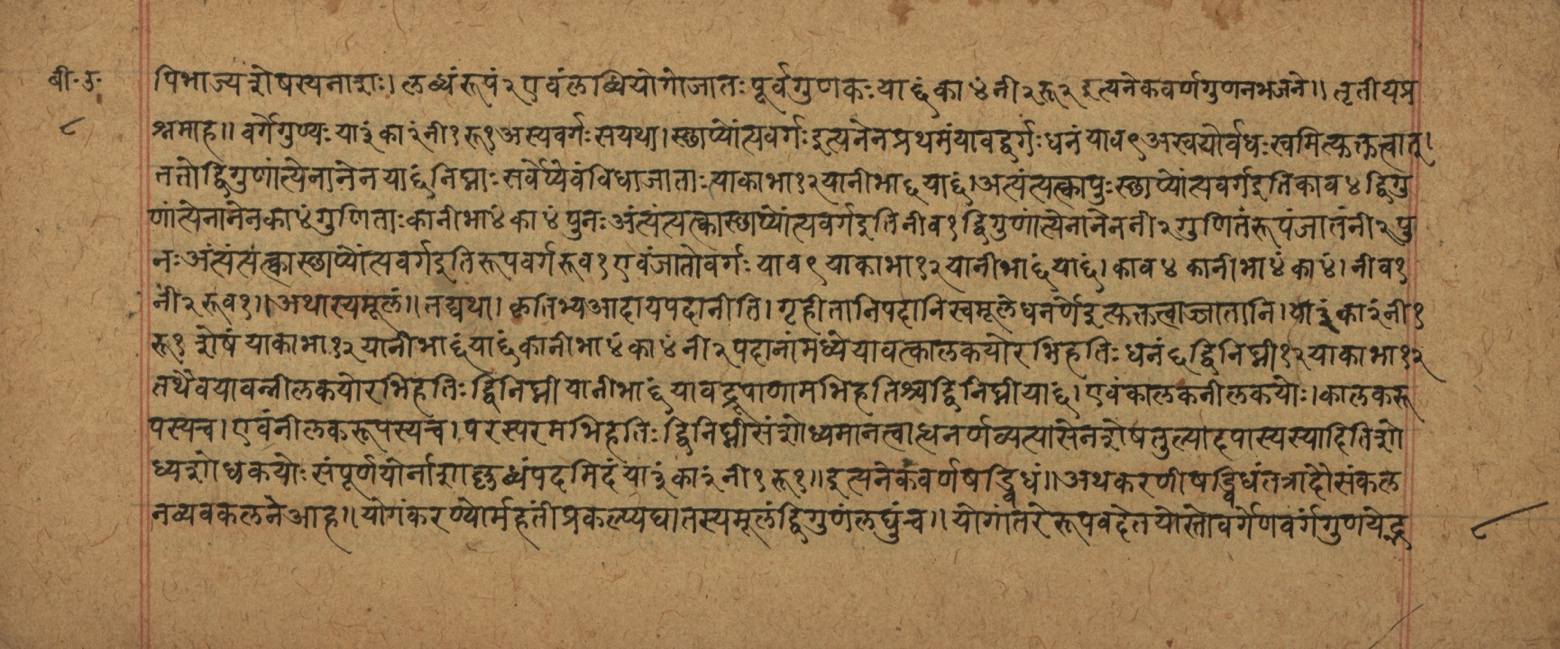 बी॰ उ॰
८
पिभाज्यशेषस्यनाशः। लब्धंरूपं२ एवंलब्धियोगोजातः पूर्वगुणकः या६ं का४ं नी२ रू२ इत्यनेकवर्णगुणनभजने॥ तृतीयप्र
श्नमाह॥ वर्गेगुण्यः या३ं का२ं नी१ रू१ अस्यवर्गः सयथा। स्थाप्योंत्यवर्गः इत्यनेनप्रथमंयावद्वर्गः धनं याव९ अस्वयोर्वधः स्वमित्यक्तत्वात्।
ततोद्विगुणांत्येनानेन या६ं निघ्नाः सर्वेप्येवंविधाजाताः याकाभा१२ यानीभा६ं या६ं। अत्यंत्यत्क्वापुः स्थाप्योंत्यवर्गइति काव४ द्विगु
णांत्येनानेन का४ं गुणिताः कानीभा४ं का४ं पुनः अंत्यंत्यत्क्वास्थाप्योंत्यवर्गइति नीव१ द्विगुणांत्येनानेन नी२ गुणितंरूपंजातं नी२ पु
नः अंत्यंत्यत्क्वास्थाप्योंत्यवर्गइतिरूपवर्ग रूव१ एवंजातोवर्गः याव९ याकाभा१२ यानीभा६ं या६ं। काव४ कानीभा४ं का४ं। नीव१
नी२ रूव१॥ अथास्यमूलं॥ तद्यथा। कृतिभ्यआदायपदानीति। गृहीतानिपदानिस्वमूलेधनर्णेइत्यक्तत्वाज्जातानि। या३ं का२ं नी१
रू१ शेषं याकाभा१२ यानीभा६ं या६ं कानीभा४ं का४ं नी२ पदानांमध्येयावत्कालकयोरभिहतिः धनं६ द्विनिघ्नी१२ याकाभा१२
तथैवयावन्नीलकयोरभिहतिः द्विनिघ्नी यानीभा६ं यावद्रूपाणामभिहतिश्चद्विनिघ्नी या६ं। एवंकालकनीलकयोः। कालकरू
पस्यच। एवंनीलकरूपस्यच। परस्परमभिहतिः द्विनिघ्नीसंशोध्यमानत्वात्धनर्णव्यत्यासेनशेषतुल्याद्दपास्यस्यादितिशो
ध्यशोधकयोः संपूर्णयोर्नाशाल्लब्धंपदमिदं या३ं का२ं नी१ रू१॥ इत्यनेकवर्णषड्विधं॥ अथकरणीषड्विधंतत्रादौसंकल
नव्यवकलनेआह॥ योगंकरण्योर्महतींप्रकल्प्यघातस्यमूलंद्विगुणंलघुंच॥ योगांतरेरूपवदेतयोस्तोवर्गेणवर्गंगुणयेद्भ
८